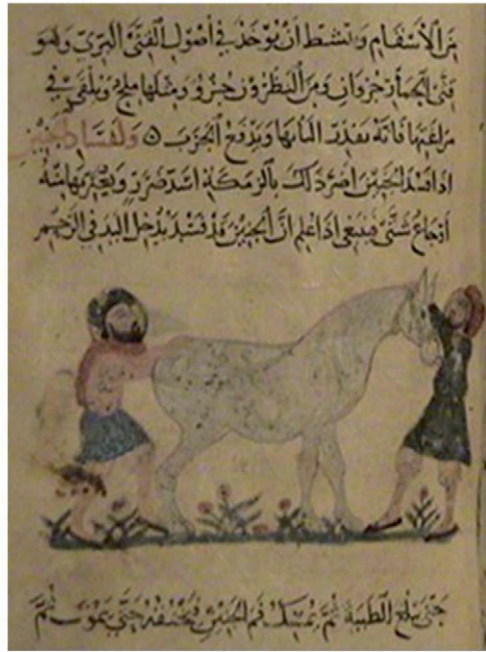 من الاسقام وتنشط ان يوخذ في اصول القثى البرى وهو
قثى الحمار جزوان ومن النطرون جزو ومثلها ملح ويلقى في
فانه يغذر البانها ويدفع الجرب ٥ ولفساد الجنين
اذا فسد الجنين اضر ذلك بالرمكة اشد ضرر ويعتريها منه
اوجاع شتى فينبغى اذا علم ان الجنين قد فسد يدخل اليد في الرحم
حتى تبلغ الطبية ثم يمسك فم الجنين فيخنقه حتى يموت ثم